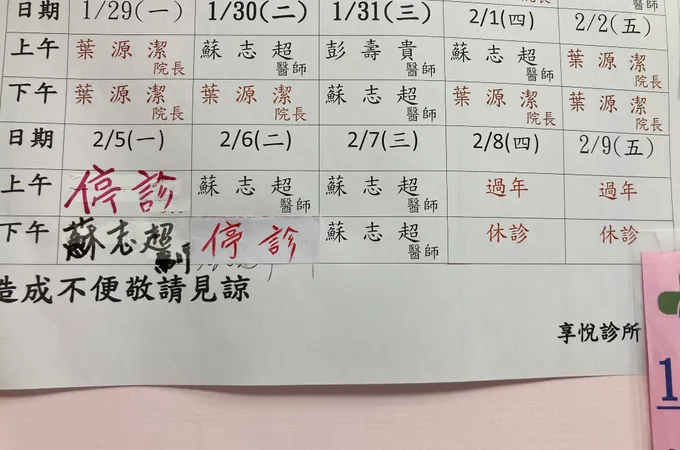 院長 醫師
日期 1/29(一) 1/30(二) 1/31(三) 2/1(四) 2/2(五)
上午 葉源潔院長 蘇志超醫師 彭壽貴醫師 蘇志超醫師 葉源潔院長
下午 葉源潔院長 葉源潔院長 蘇志超醫師 葉源潔院長 葉源潔院長
日期 2/5(一) 2/6(二) 2/7(三) 2/8(四) 2/9(五)
上午 停診 蘇志超醫師 蘇志超醫師 過年 過年
下午 蘇志超 停診 蘇志超醫師 休診 休診
造成不便敬請見諒
享悅診所
1